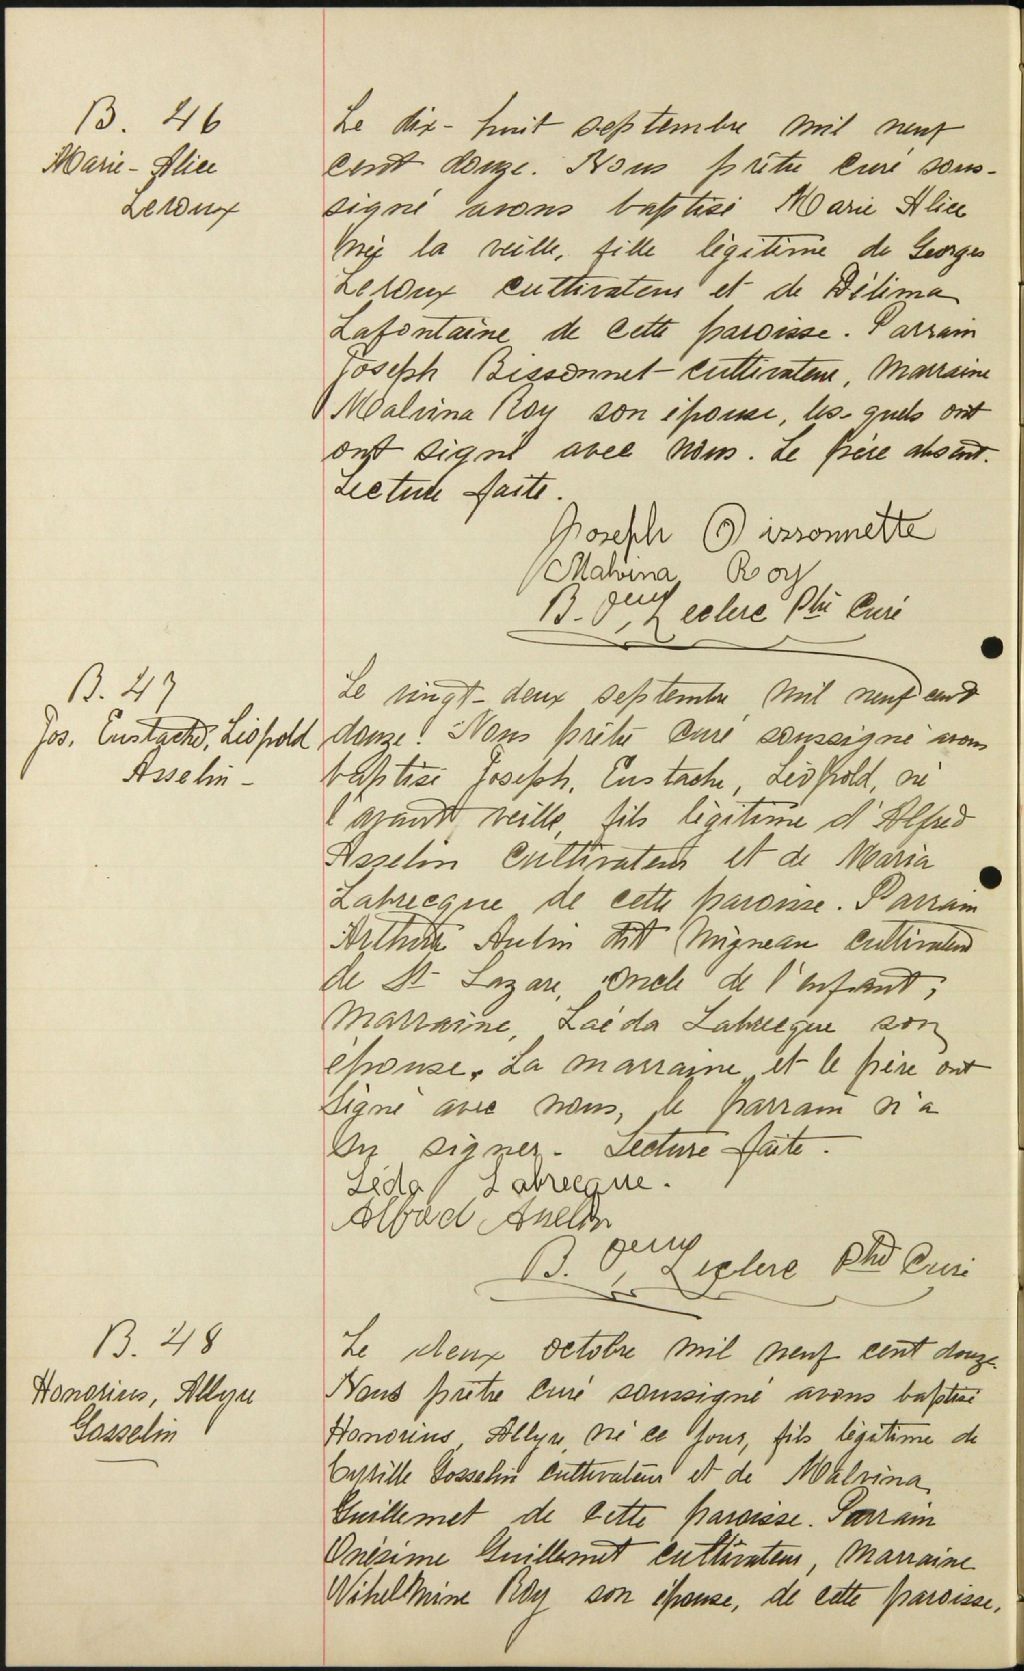 B. 46
Marie-Alice
Leroux
Le dix-huit septembre mil neuf
cent douze. Nous prêtre curé sous-
signé avons baptisé Marie Alice
née la veille, fille légitime de Georges
Leroux cultivateur et de Délima
Lafontaine de cette paroisse. Parrain
Joseph Bissonnet cultivateur, marraine
Malvina Roy son épouse, les-quels ont
ont signé avec nous. Le père absent.
Lecture faite.
Joseph Bissonnette
Malvina Roy
B. Leclerc Ptre Curé
B. 47
Jos. Eustache, Léopold
Asselin -
Le vingt-deux septembre mil neuf cent
douze. Nous prêtre curé soussigné avons
baptisé Joseph, Eustache, Léopold, né
l'avant veille, fils légitime d'Alfred
Asselin cultivateur et de Maria
Labrecque de cette paroisse. Parrain
Arthur Aubin dit Migneau cultivateur
de St Lazare, oncle de l'enfant;
marraine, Laéda Labrecque son
épouse. La marraine et le père ont
signé avec nous, le parrain n'a
su signer. Lecture faite.
Léda Labrecque.
Alfred Asselin
B. Leclerc Ptre Curé
B. 48
Honorius, Allyre
Gosselin
Le deux octobre mil neuf cent douze.
Nous prêtre curé soussigné avons baptisé
Honorius, Allyre, né ce jour, fils légitime de
Cyrille Gosselin cultivateur et de Malvina
Guillemet de cette paroisse. Parrain
Onésime Guillemet cultivateur, marraine
Wihelmine Roy son épouse, de cette paroisse.